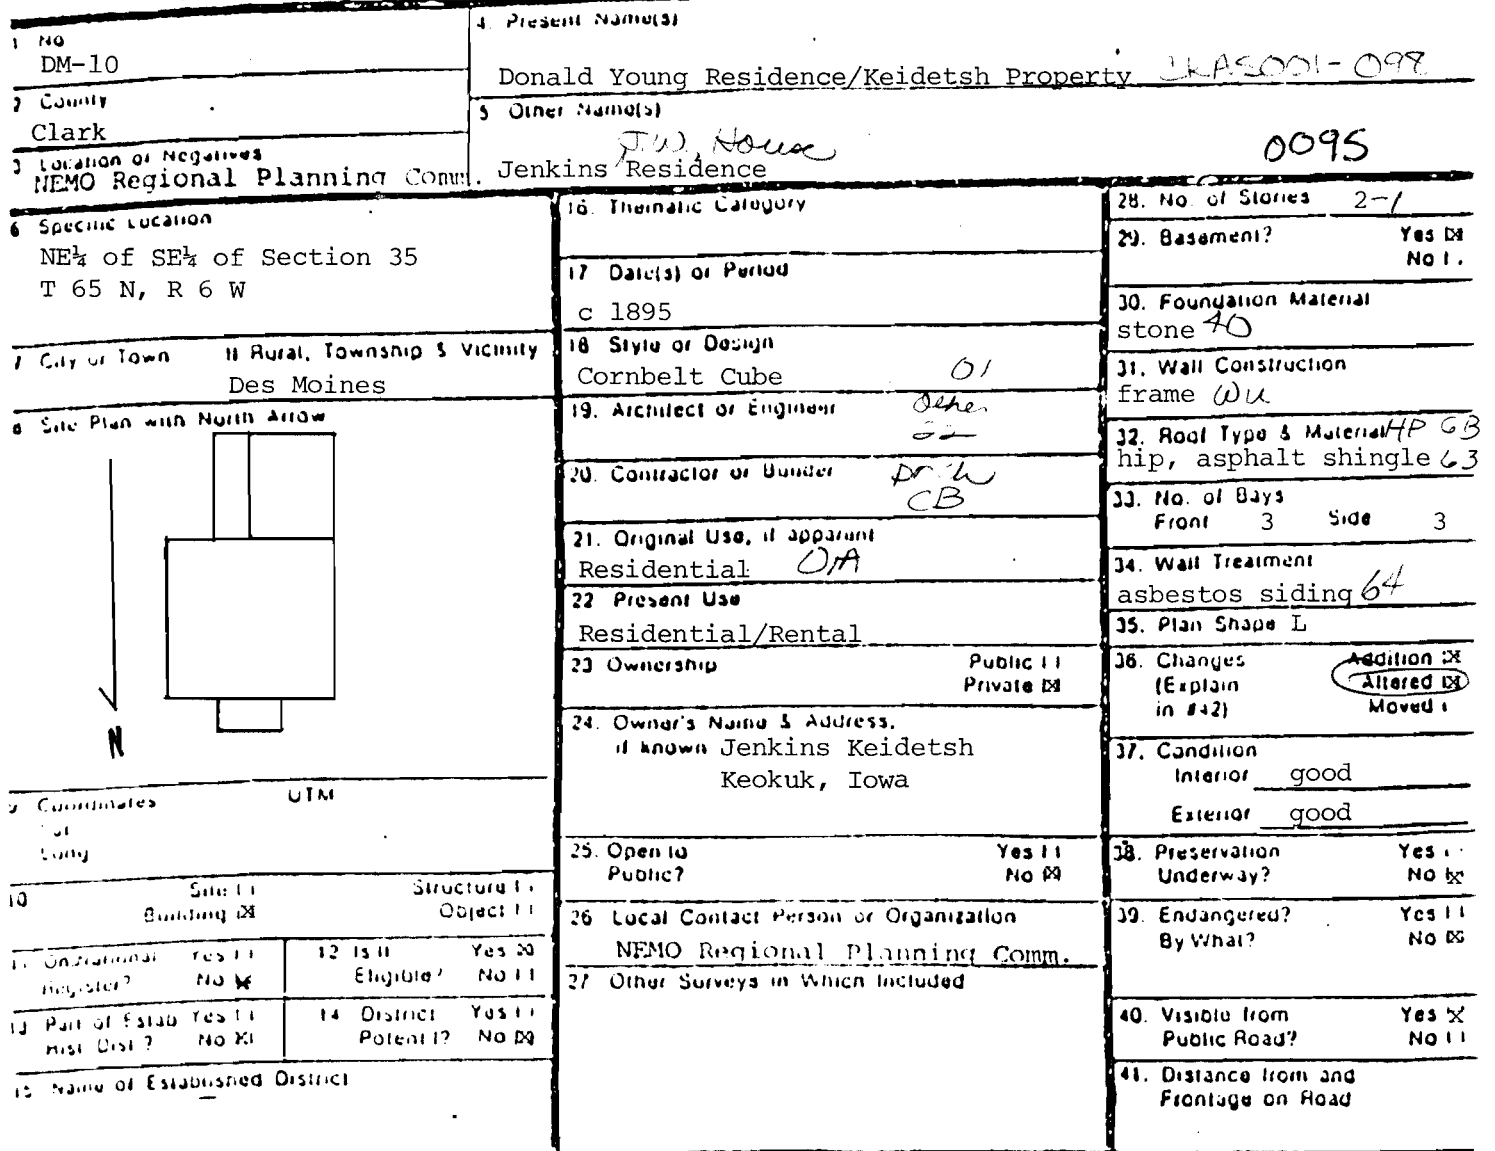 1 No
DM-10
2 County
Clark
3 Location of Negatives
NEMO Regional Planning Comm.
4. Present Name(s)
Donald Young Residence/Keidetsh Property
5 Other Name(s)
J.W. House
Jenkins Residence
0095
6 Specific Location
NE¼ of SE¼ of Section 35
T 65 N, R 6 W
7 City or Town If Rural, Township & Vicinity
Des Moines
8 Site Plan with North Arrow
N
9 Coordinates UTM
Lat
Long
10 Site [ ] Structure [ ]
Building [X] Object [ ]
11 On National Register? Yes [ ] No [X]
12 Is It Eligible? Yes [X] No [ ]
13 Part of Estab Hist Dist? Yes [ ] No [X]
14 District Potent'l? Yes [ ] No [X]
15 Name of Established District
16. Thematic Category
17 Date(s) or Period
c 1895
18 Style or Design
Cornbelt Cube 01
19. Architect or Engineer
Other
22
20. Contractor or Builder
CB
21. Original Use, if apparent
Residential 01A
22 Present Use
Residential/Rental
23 Ownership Public [ ]
Private [X]
24. Owner's Name & Address,
if known Jenkins Keidetsh
Keokuk, Iowa
25. Open to Public? Yes [ ]
No [X]
26 Local Contact Person or Organization
NEMO Regional Planning Comm.
27 Other Surveys in Which Included
28. No. of Stories 2-1
29. Basement? Yes [X]
No [ ]
30. Foundation Material
stone 40
31. Wall Construction
frame WU
32. Roof Type & Material HP GB
hip, asphalt shingle 63
33. No. of Bays
Front 3 Side 3
34. Wall Treatment
asbestos siding 64
35. Plan Shape L
36. Changes Addition [X]
(Explain Altered [X]
in #42) Moved [ ]
37. Condition
Interior good
Exterior good
38. Preservation Yes [ ]
Underway? No [X]
39. Endangered? Yes [ ]
By What? No [X]
40. Visible from Yes [X]
Public Road? No [ ]
41. Distance from and
Frontage on Road